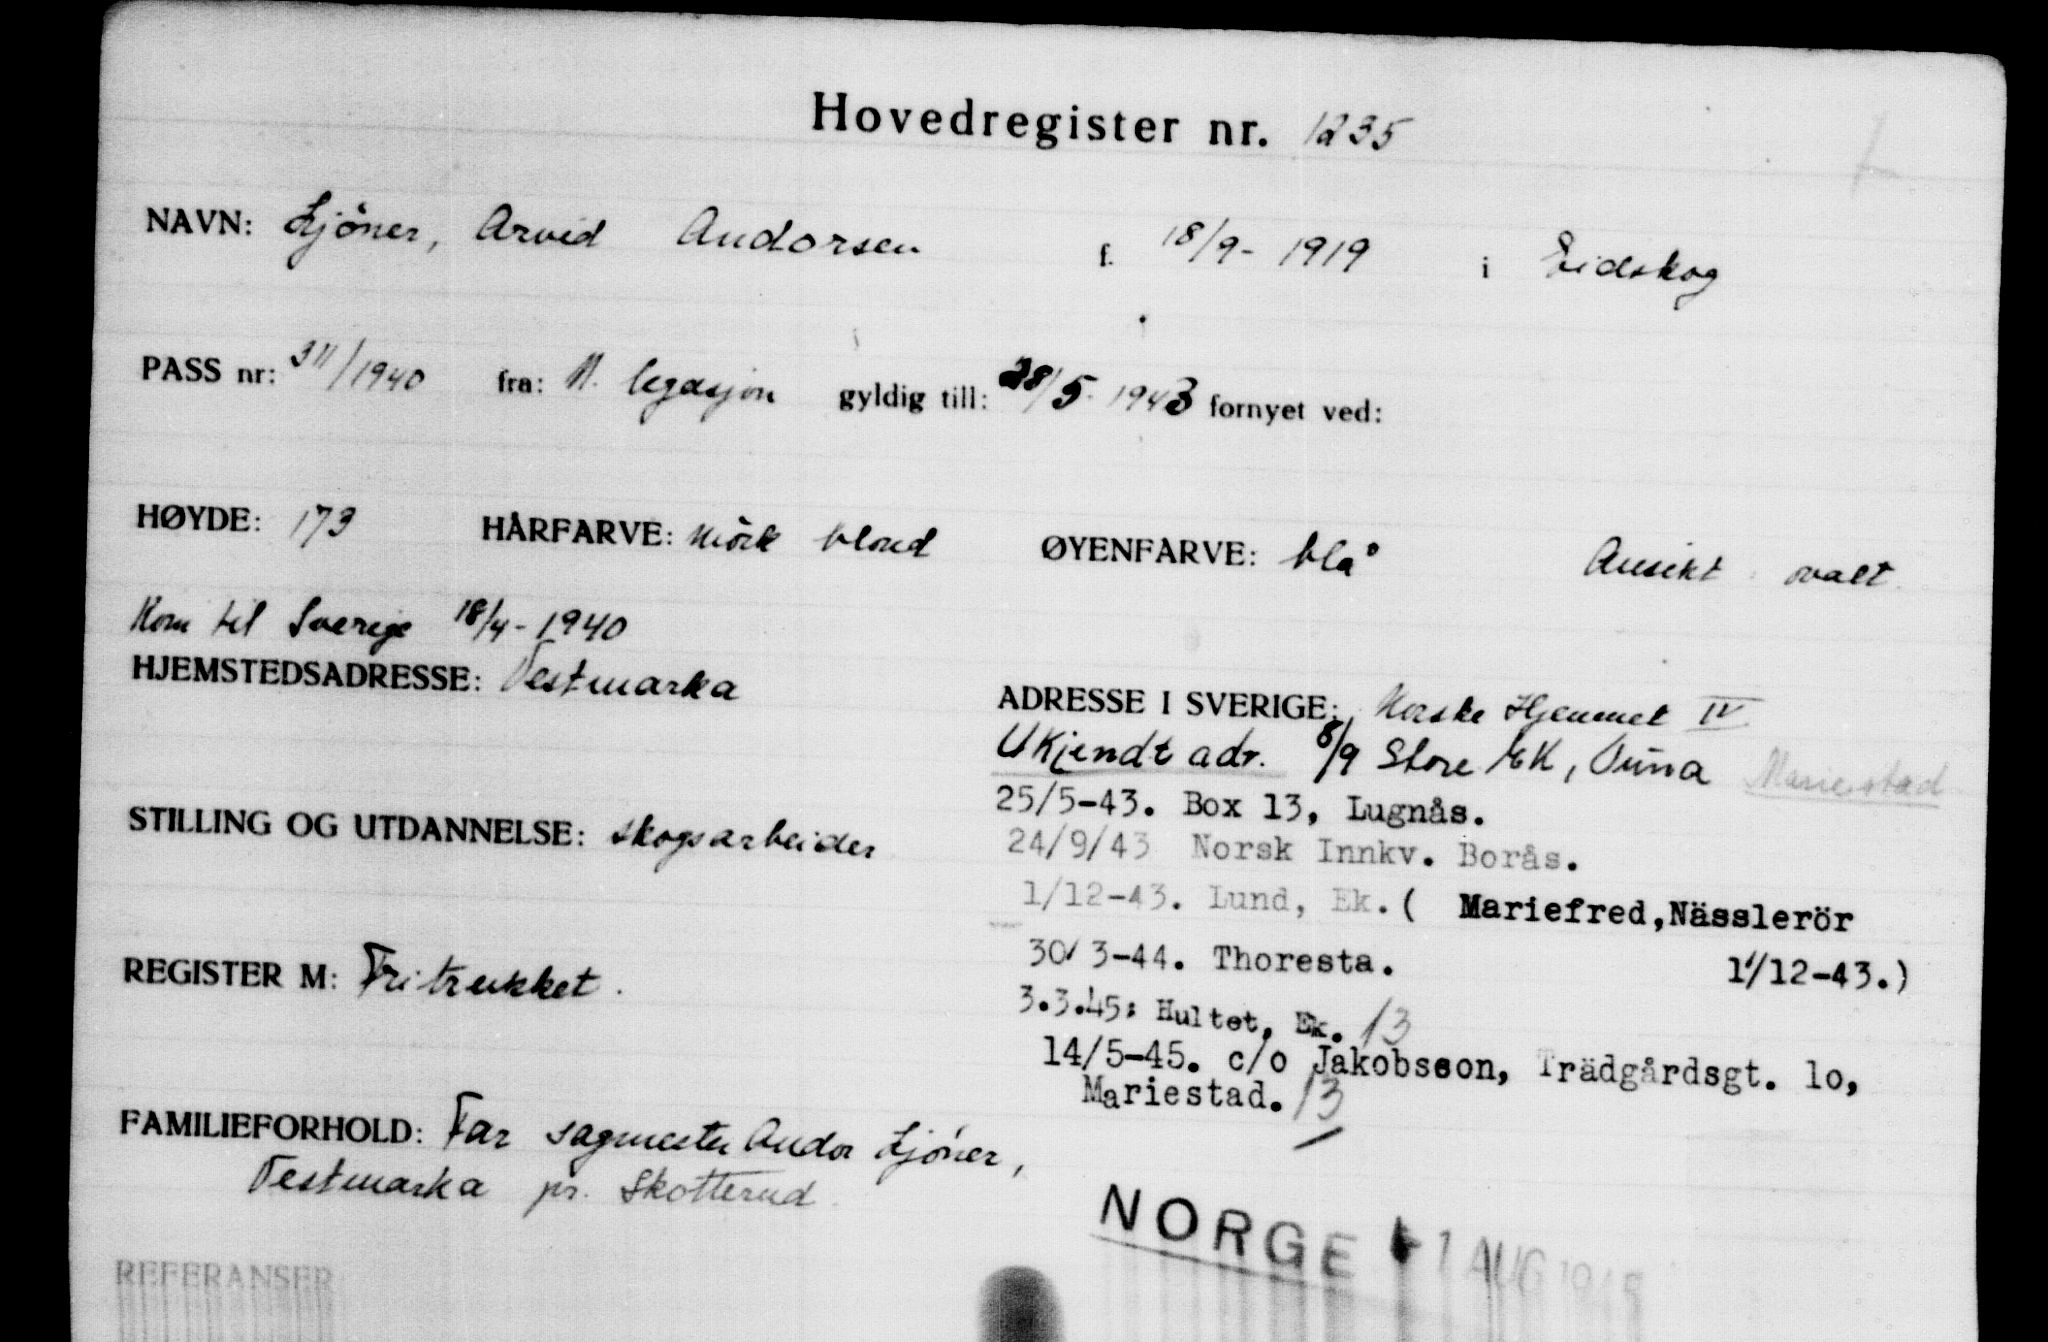 Hovedregister nr. 1235
NAVN: Ljöner, Arvid Andorsen f. 18/9- 1919 i Eidskog
PASS nr: 311/1940 fra: N. legasjon gyldig till: 28/5- 1943 fornyet ved:
HØYDE: 173 HÅRFARVE: mörk blond ØYENFARVE: blå Ansikt ovalt
Kom til Sverige 18/4- 1940
HJEMSTEDSADRESSE: Vestmarka
ADRESSE I SVERIGE: Norske Hjemmet IV
Ukjendt adr. 8/9 Store EK, Mariestad
25/5-43. Box 13, Lugnås.
STILLING OG UTDANNELSE: skogsarbeider
24/9/43 Norsk Innkv. Borås.
1/12-43. Lund, Ek. ( Mariefred, Nässlerör
1/12-43.)
REGISTER M: Fritrukket.
30/3-44. Thoresta.
3.3.45: Hultet, Ek. 13
14/5-45. c/o Jakobsson, Trädgårdsgt. 1o,
Mariestad. 13
FAMILIEFORHOLD: Far sagmester Andor Ljöner,
Vestmarka pr. Skotterud
NORGE 1 AUG 1945
REFERANSER